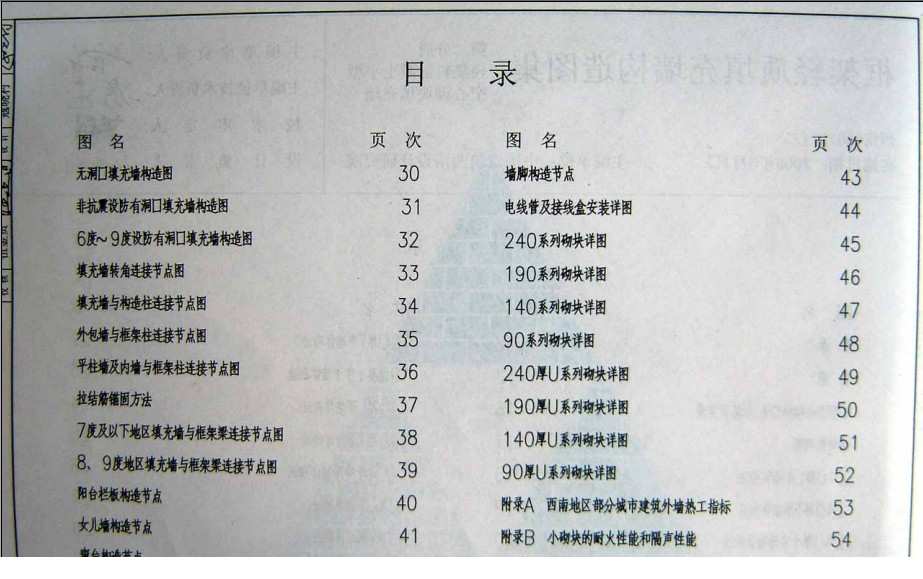 目 录
图 名 页 次
无洞口填充墙构造图 30
非抗震设防有洞口填充墙构造图 31
6度～9度设防有洞口填充墙构造图 32
填充墙转角连接节点图 33
填充墙与构造柱连接节点图 34
外包墙与框架柱连接节点图 35
平柱墙及内墙与框架柱连接节点图 36
拉结筋锚固方法 37
7度及以下地区填充墙与框架梁连接节点图 38
8、9度地区填充墙与框架梁连接节点图 39
阳台栏板构造节点 40
女儿墙构造节点 41
窗台构造节点
图 名 页 次
墙脚构造节点 43
电线管及接线盒安装详图 44
240系列砌块详图 45
190系列砌块详图 46
140系列砌块详图 47
90系列砌块详图 48
240厚U系列砌块详图 49
190厚U系列砌块详图 50
140厚U系列砌块详图 51
90厚U系列砌块详图 52
附录A 西南地区部分城市建筑外墙热工指标 53
附录B 小砌块的耐火性能和隔声性能 54